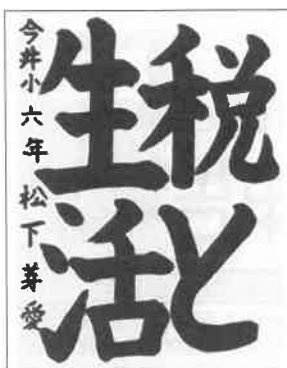 税と
生活
今井小六年松下芽愛